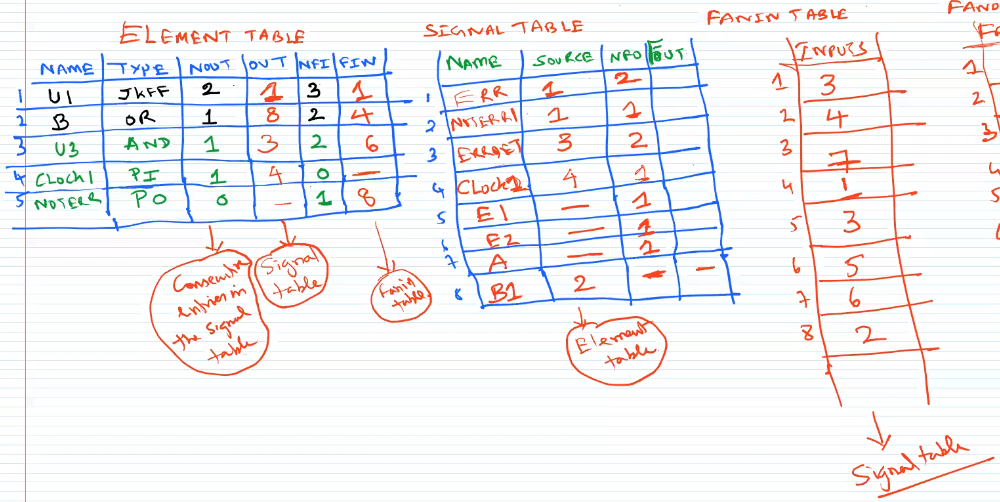 ELEMENT TABLE
NAME TYPE NOUT OUT NFI FIN
1 U1 JKFF 2 1 3 1
2 B OR 1 8 2 4
3 U3 AND 1 3 2 6
4 CLOCK1 PI 1 4 0 —
5 NOTERR PO 0 — 1 8
Consecutive
entries in
the signal
table
Signal
table
Fanin
table
SIGNAL TABLE
NAME SOURCE NFO FOUT
1 ERR 1 2
2 NOTERR1 1 1
3 ERRDET 3 2
4 CLOCK1 4 1
5 E1 — 1
6 E2 — 1
7 A — 1
8 B1 2 — —
Element
table
FANIN TABLE
INPUTS
1 3
2 4
3 7
4 1
5 3
6 5
7 6
8 2
Signal table
FANO
1
2
3